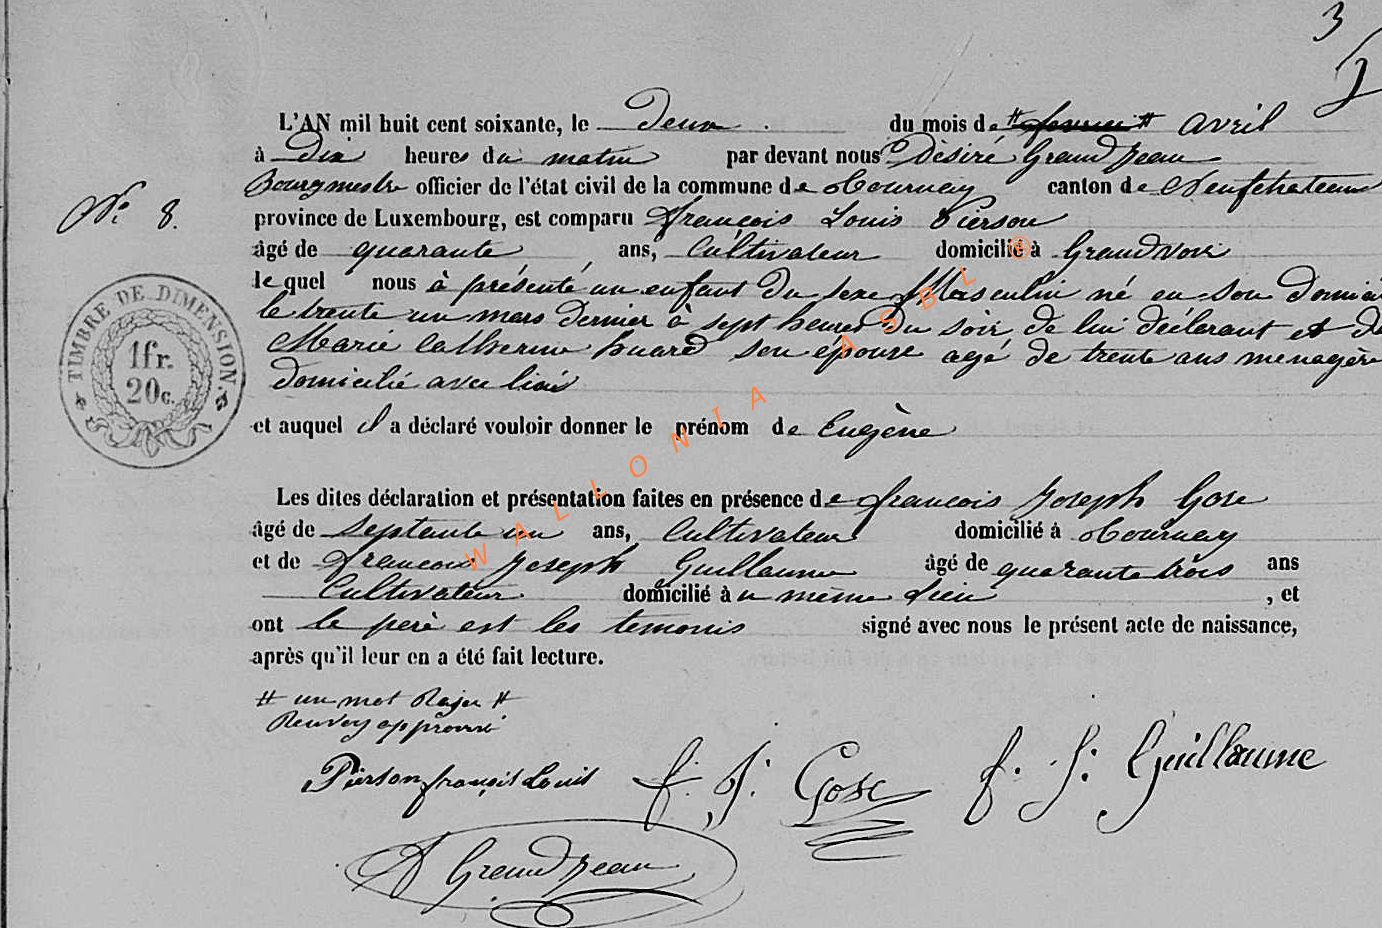 3
L'AN mil huit cent soixante, le Deux du mois de # fevrier # avril
à Dix heures du matin par devant nous Désiré Grandjean
Bourgmestre officier de l'état civil de la commune de Tournay canton de Neufchateau
province de Luxembourg, est comparu françois Louis Pierson
N° 8.
âgé de quarante ans, Cultivateur domicilié à Grandvoir
le quel nous à présenté un enfant Du sexe Masculin né en son domici
le trente un mars dernier à sept heures Du soir de lui déclarant et de
Marie Catherine huard son épouse agé de trente ans menagère
domicilié avec lui
TIMBRE DE DIMENSION.
1fr.
20c.
et auquel il a déclaré vouloir donner le prénom de Eugène
Les dites déclaration et présentation faites en présence de francois Joseph Gose
âgé de septante un ans, Cultivateur domicilié à Tournay
et de francois Joseph Guillaume âgé de quarante trois ans
Cultivateur domicilié à u même Lieu , et
ont le perè est les temonis signé avec nous le présent acte de naissance,
après qu'il leur en a été fait lecture.
# un mot Rajer #
Renvoy approuvé
Pierson françois Louis f. J. Gose f. J. Guillaume
D Grandjean
WALLONIA ASBL ®